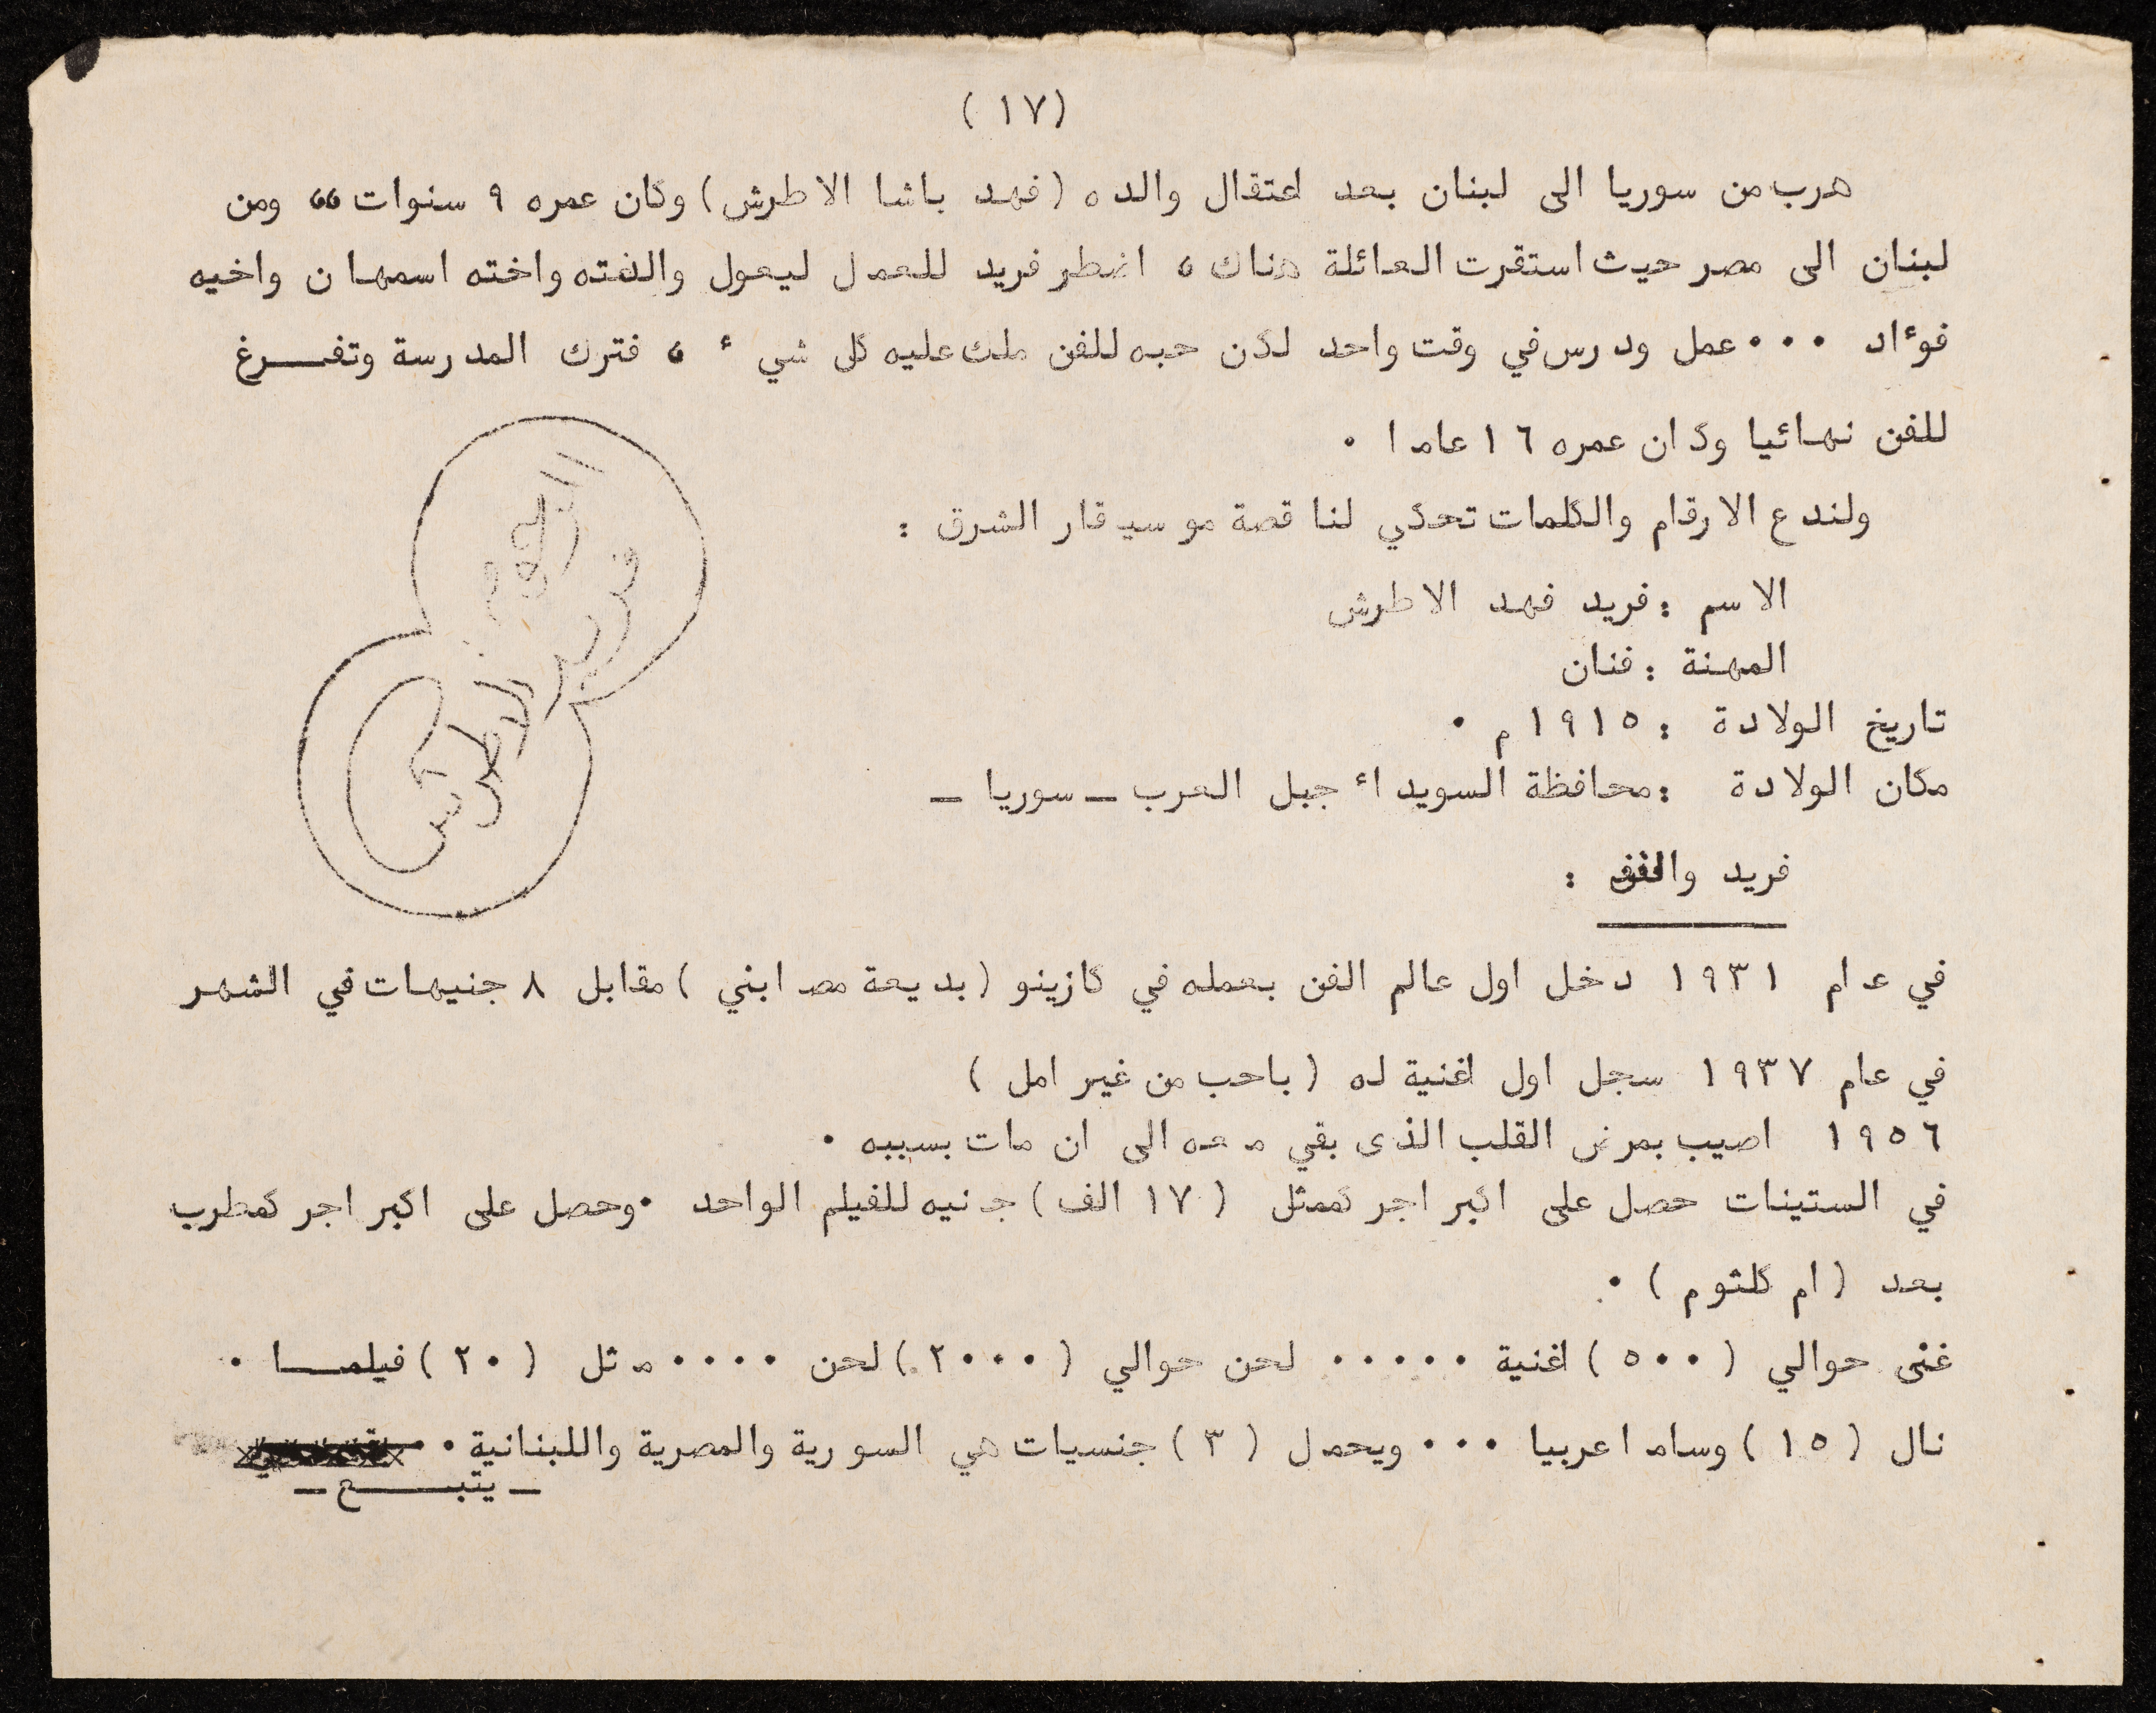 (١٧)
هرب من سوريا الى لبنان بعد اعتقال والده (فهد باشا الاطرش) وكان عمره ٩ سنوات ،، ومن
لبنان الى مصر حيث استقرت العائلة هناك ، اضطر فريد للعمل ليعول والدته واخته اسمهان واخيه
فوءاد ٠٠٠ عمل ودرس في وقت واحد لكن حبه للفن ملك عليه كل شيء ، فترك المدرسة وتفـــرغ
للفن نهائيا وكان عمره ١٦ عاما ٠
ولندع الارقام والكلمات تحكي لنا قصة موسيقار الشرق :
الاسم : فريد فهد الاطرش
المهنة : فنان
تاريخ الولادة : ١٩١٥ م ٠
مكان الولادة : محافظة السويداء جبل العرب ــ سوريا ــ
فريد والفن :
في عام ١٩٣١ دخل اول عالم الفن بعمله في كازينو (بديعة مصابني) مقابل ٨ جنيهات في الشهر
في عام ١٩٣٧ سجل اول اغنية له (باحب من غير امل)
١٩٥٦ اصيب بمرض القلب الذى بقي معه الى ان مات بسببه ٠
في الستينات حصل على اكبر اجر كممثل (١٧ الف) جنيه للفيلم الواحد ٠ وحصل على اكبر اجر كمطرب
بعد (ام كلثوم) ٠
غنى حوالي (٥٠٠) اغنية ٠٠٠٠٠ لحن حوالي (٢٠٠٠) لحن ٠٠٠٠ مثل (٢٠) فيلمـــا ٠
نال (١٥) وساما عربيا ٠٠٠ ويحمل (٣) جنسيات هي السورية والمصرية واللبنانية ٠٠
ــ يتبـــــع ــ
فريد الاطرش